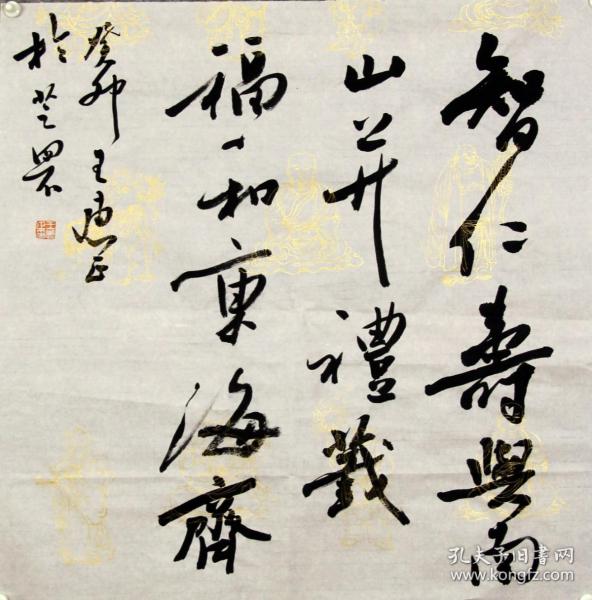 智仁壽與南
山并禮義
福和東海齊
癸卯王正
於芝罘
孔夫子旧书网
www.kongfz.com